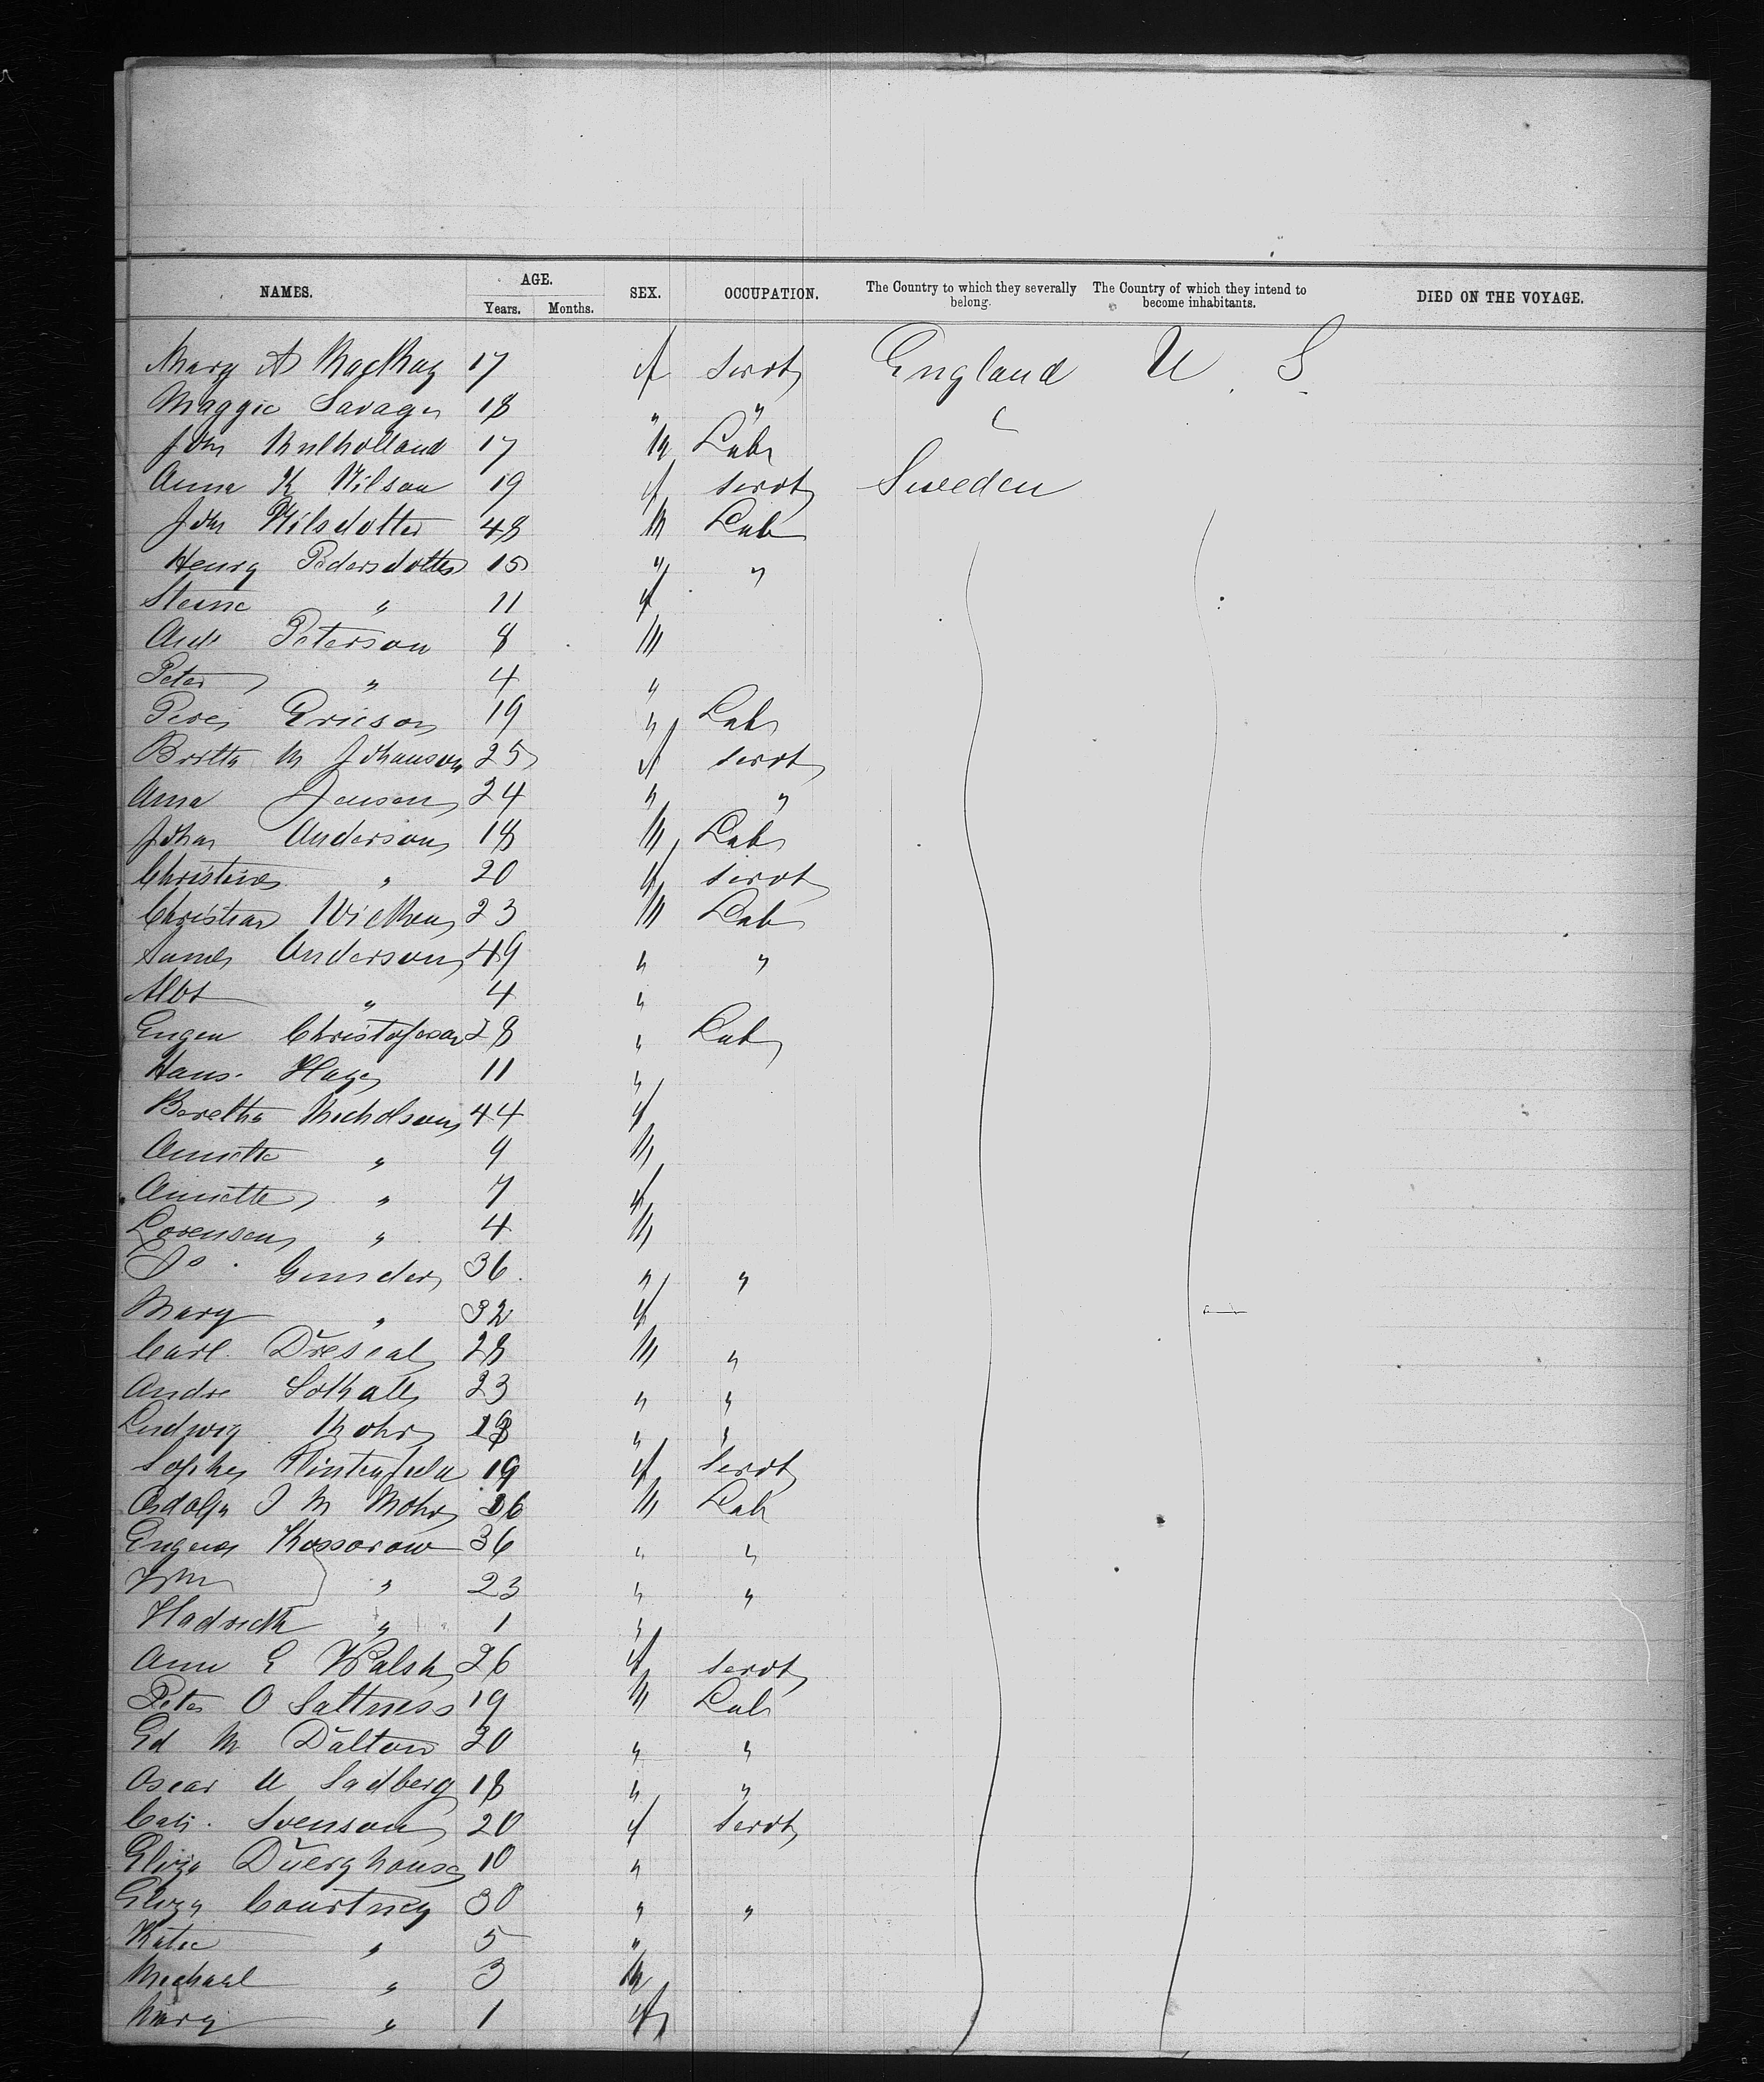 NAMES. AGE. Years. Months. SEX. OCCUPATION. The Country to which they severally belong. The Country of which they intend to become inhabitants. DIED ON THE VOYAGE.
Mary A MacKay 17 f servt England U. S
Maggie Savage 18 " " "
John Mulholland 17 M Labr
Anna K Nilson 19 f servt Sweden
John Nilsdotter 48 M Lab
Henry Pedersdotter 15 " "
Steine " 11 f
Andr Peterson 8 M
Peter " 4 "
Ericson 19 " Labr
Britta M Johanson 25 f servt
Anna Jenson 24 " "
Johan Anderson 18 M Labr
Christine " 20 f servt
Christian 23 M Lab
Anderson 49 " "
Albt " 4 "
Eugen Christofeson 28 " Lab
Hans Hage 11 "
Beretha Nicholson 44 f
Annette " 9 M
Annette " 7 f
Lorensen " 4 M
Do Gunder 36 " "
Mary " 32 f
Carl Drescal 28 M "
Andre 23 " "
Ludwig Mohr " "
Sophy 19 f Servt
Adolph J M Mohr 26 M Lab
Kossorow 36 " "
Wm " 23 " "
" 1 "
Ann E Walsh 26 f servt
Peter O Saltness 19 M Lab
Ed M Dalton 20 " "
Oscar U Sadberg 18 " "
Cath. Svenson 20 f Servt
Eliza Duerghouse 10 "
Eliza Courtney 30 " "
Katie " 5 "
Michael " 3 M
Mary " 1 f